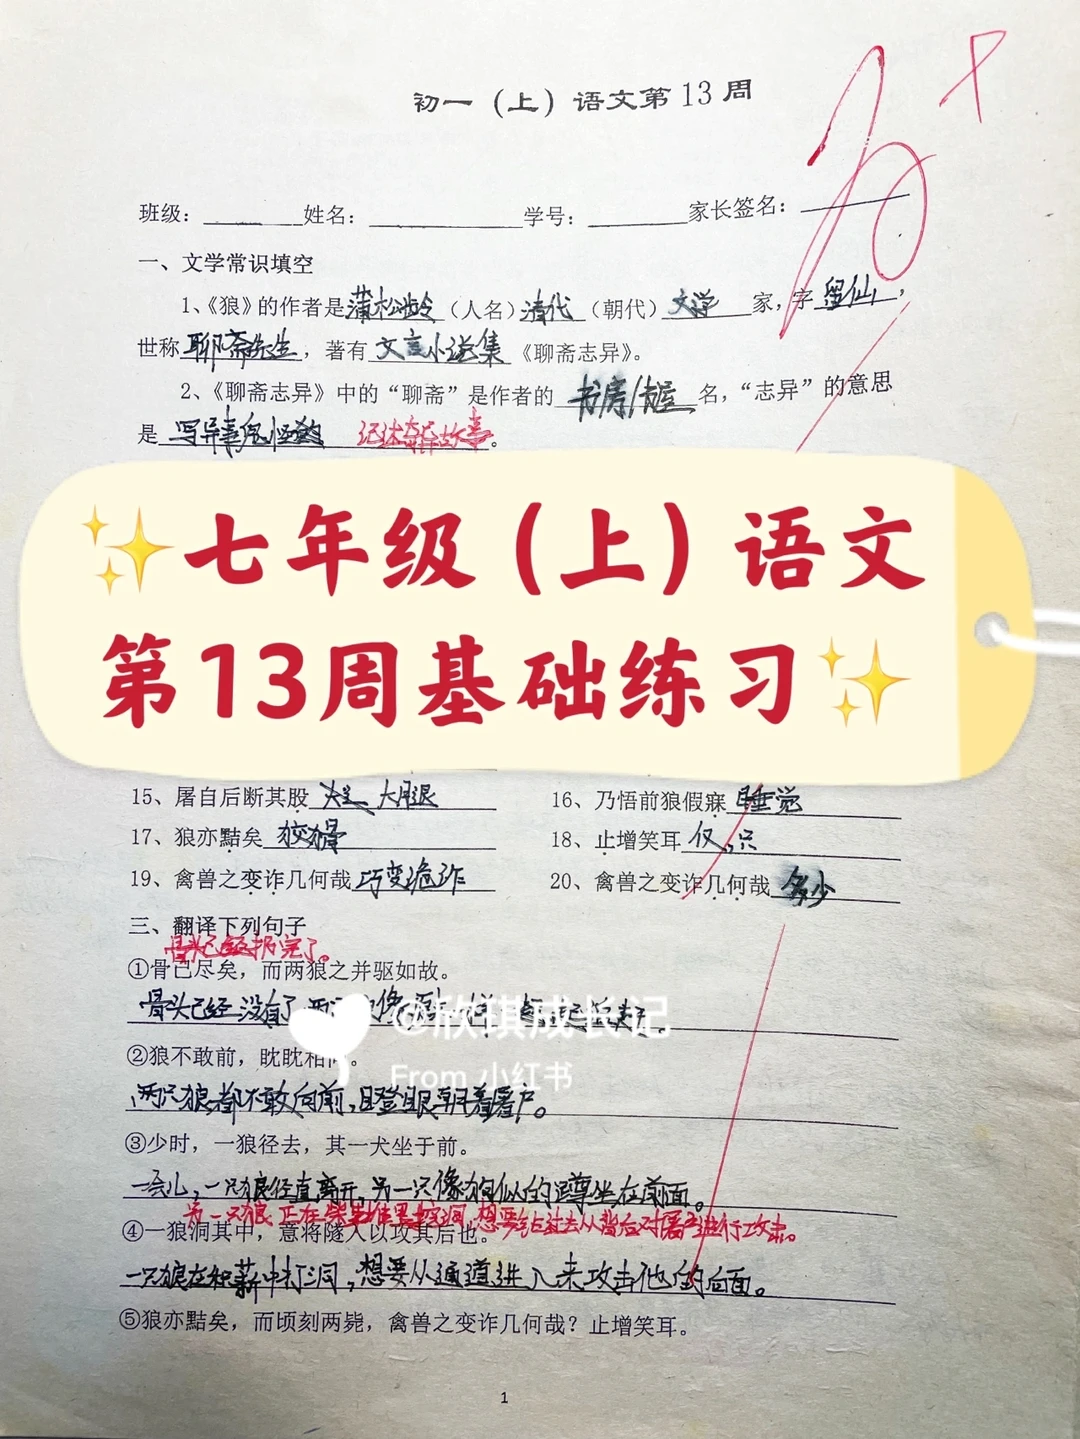 初一（上）语文第13周
班级：______姓名：______学号：______家长签名：______
一、文学常识填空
1、《狼》的作者是蒲松龄（人名）清代（朝代）文学家，字留仙，
世称聊斋先生，著有文言小说集《聊斋志异》。
2、《聊斋志异》中的“聊斋”是作者的书房/书屋名，“志异”的意思
是写异事鬼怪的 记述奇异故事。
✨七年级（上）语文
第13周基础练习✨
15、屠自后断其股 大腿
16、乃悟前狼假寐 睡觉
17、狼亦黠矣 狡猾
18、止增笑耳 仅，只
19、禽兽之变诈几何哉 巧变诡诈
20、禽兽之变诈几何哉 多少
三、翻译下列句子
骨头已经扔完了。
①骨已尽矣，而两狼之并驱如故。
骨头已经没有了 像
②狼不敢前，眈眈相向。
两只狼都不敢向前，瞪眼朝着屠户。
③少时，一狼径去，其一犬坐于前。
一会儿，一只狼径直离开，另一只像狗似的蹲坐在前面。
另一只狼正在柴草堆里打洞，想要钻过去从背后对屠户进行攻击。
④一狼洞其中，意将隧入以攻其后也。
一只狼在积薪中打洞，想要从通道进入来攻击他的后面。
⑤狼亦黠矣，而顷刻两毙，禽兽之变诈几何哉？止增笑耳。
1
@欣琪成长记
From 小红书